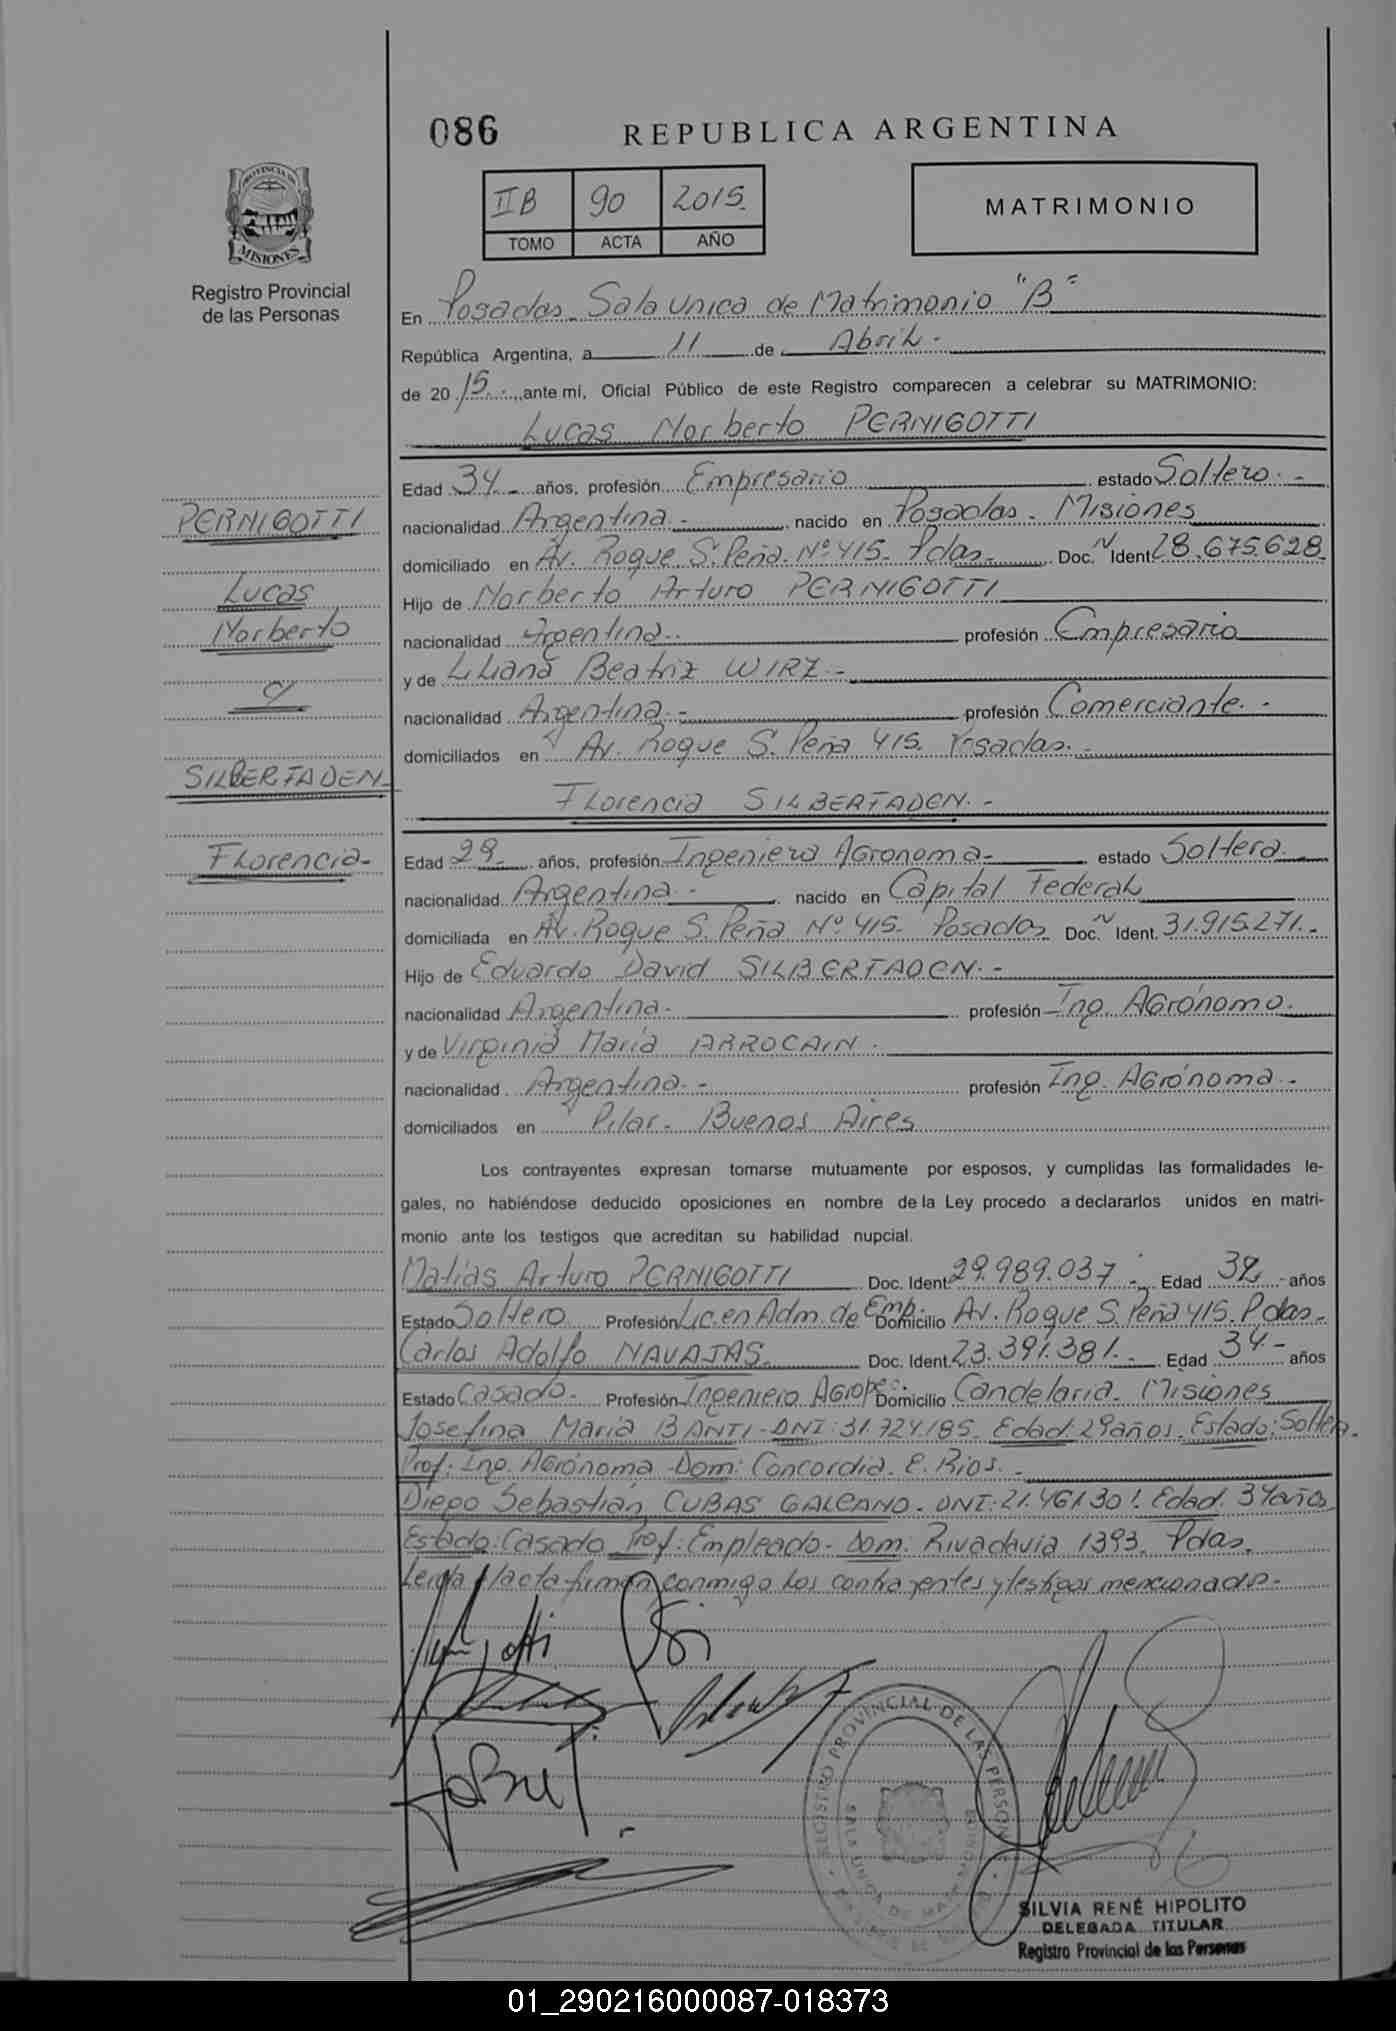 086 REPUBLICA ARGENTINA
PROVINCIA DE MISIONES
Registro Provincial
de las Personas
IIB 90 2015.
TOMO ACTA AÑO
MATRIMONIO
En Posadas. Sala unica de Matrimonio "B"
República Argentina, a 11 de Abril.-
de 2015.-, ante mí, Oficial Público de este Registro comparecen a celebrar su MATRIMONIO:
Lucas Norberto PERNIGOTTI
PERNIGOTTI
Lucas
Norberto
c/
SILBERFADEN-
Florencia-
Edad 34.- años, profesión Empresario estado Soltero.-
nacionalidad Argentina.- nacido en Posadas. Misiones
domiciliado en Av. Roque S. Peña. Nº 415. Pdas.- Doc. N Ident. 28.675.628.
Hijo de Norberto Arturo PERNIGOTTI
nacionalidad Argentina. profesión Empresario
y de Liliana Beatriz WIRZ.-
nacionalidad Argentina.- profesión Comerciante.-
domiciliados en Av. Roque S. Peña 415. Posadas.-
Florencia SILBERFADEN.-
Edad 29. años, profesión Ingeniera Agronoma- estado Soltera.
nacionalidad Argentina.- nacido en Capital Federal
domiciliada en Av. Roque S. Peña Nº 415. Posadas Doc. N Ident. 31.915.271.-
Hijo de Eduardo David SILBERFADEN.-
nacionalidad Argentina. profesión Ing. Agrónomo.
y de Virginia María ARROCAIN.
nacionalidad Argentina.- profesión Ing. Agrónoma.-
domiciliados en Pilar. Buenos Aires
Los contrayentes expresan tomarse mutuamente por esposos, y cumplidas las formalidades le-
gales, no habiéndose deducido oposiciones en nombre de la Ley procedo a declararlos unidos en matri-
monio ante los testigos que acreditan su habilidad nupcial.
Matias Arturo PERNIGOTTI Doc. Ident. 29.989.037.- Edad 32 años
Estado Soltero Profesión Lic. en Adm. de Emp. Domicilio Av. Roque S. Peña 415. Pdas.
Carlos Adolfo NAVAJAS. Doc. Ident. 23.391.381.- Edad 34- años
Estado Casado. Profesión Ingeniero Agropec. Domicilio Candelaria. Misiones
Josefina María BANTI- DNI: 31.724.185. Edad: 29 años. Estado: Soltera.
Prof: Ing. Agrónoma. Dom: Concordia. E. Rios.-
Diego Sebastián CUBAS GALEANO. DNI: 21.461.301. Edad. 34 años
Estado: Casado Prof: Empleado- Dom: Rivadavia 1393. Pdas.
Leida el acta firman conmigo los contrayentes y testigos mencionado.-
REGISTRO PROVINCIAL DE LAS PERSONAS
SALA UNICA DE MATRIMONIO
SILVIA RENÉ HIPOLITO
DELEGADA TITULAR
Registro Provincial de las Personas
01_290216000087-018373